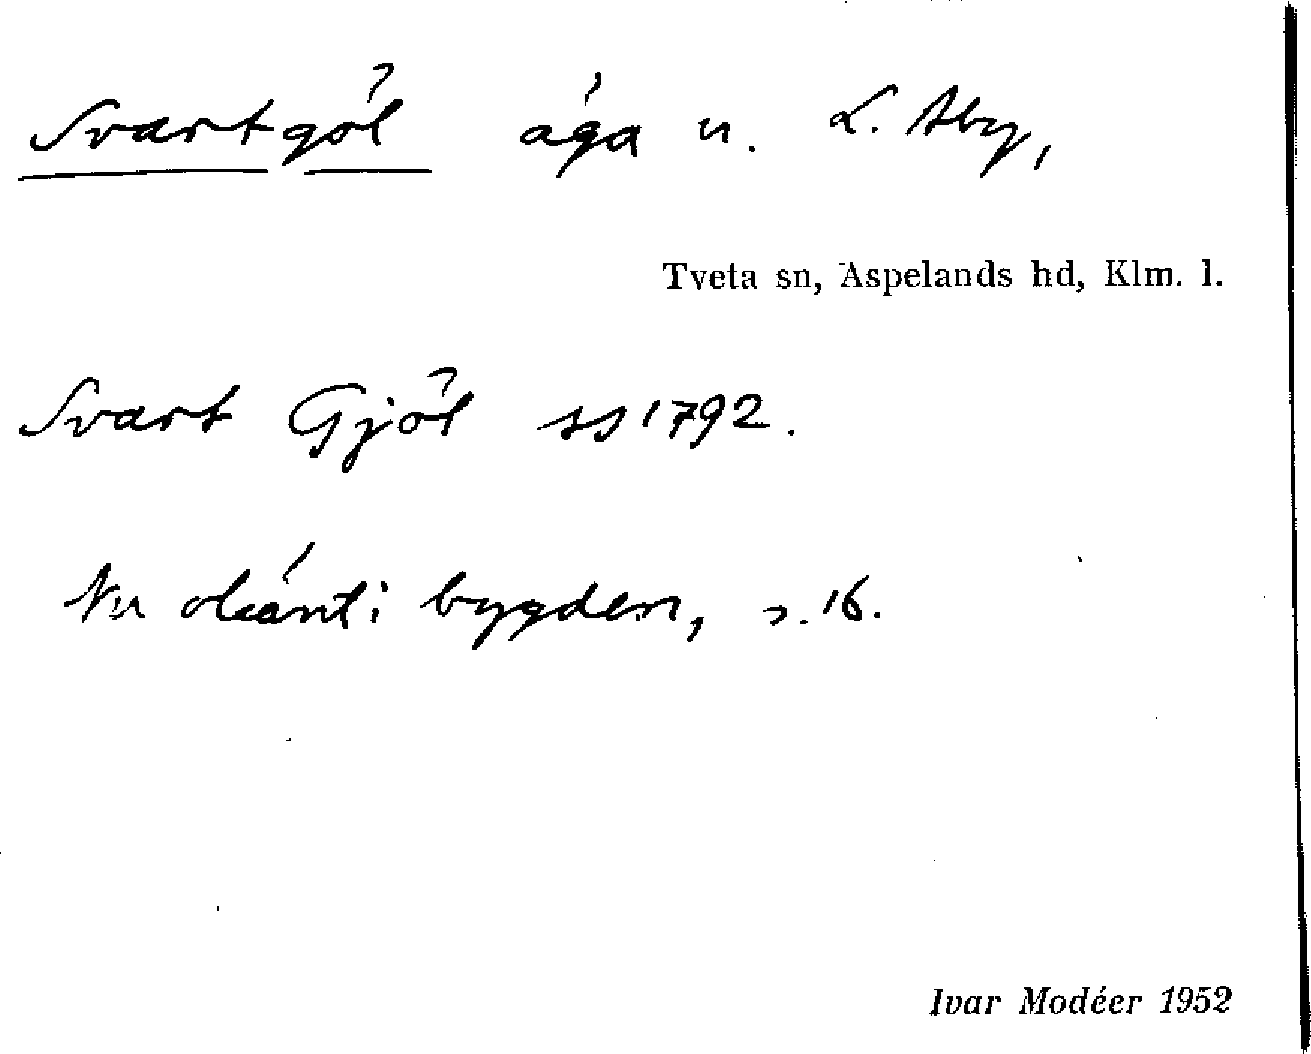 Svartgöl äga u. L. Aby,
Tveta sn, Aspelands hd, Klm. l.
Svart Gjöl ss 1792.
Nu okänt i bygden, s. 16.
Ivar Modéer 1952